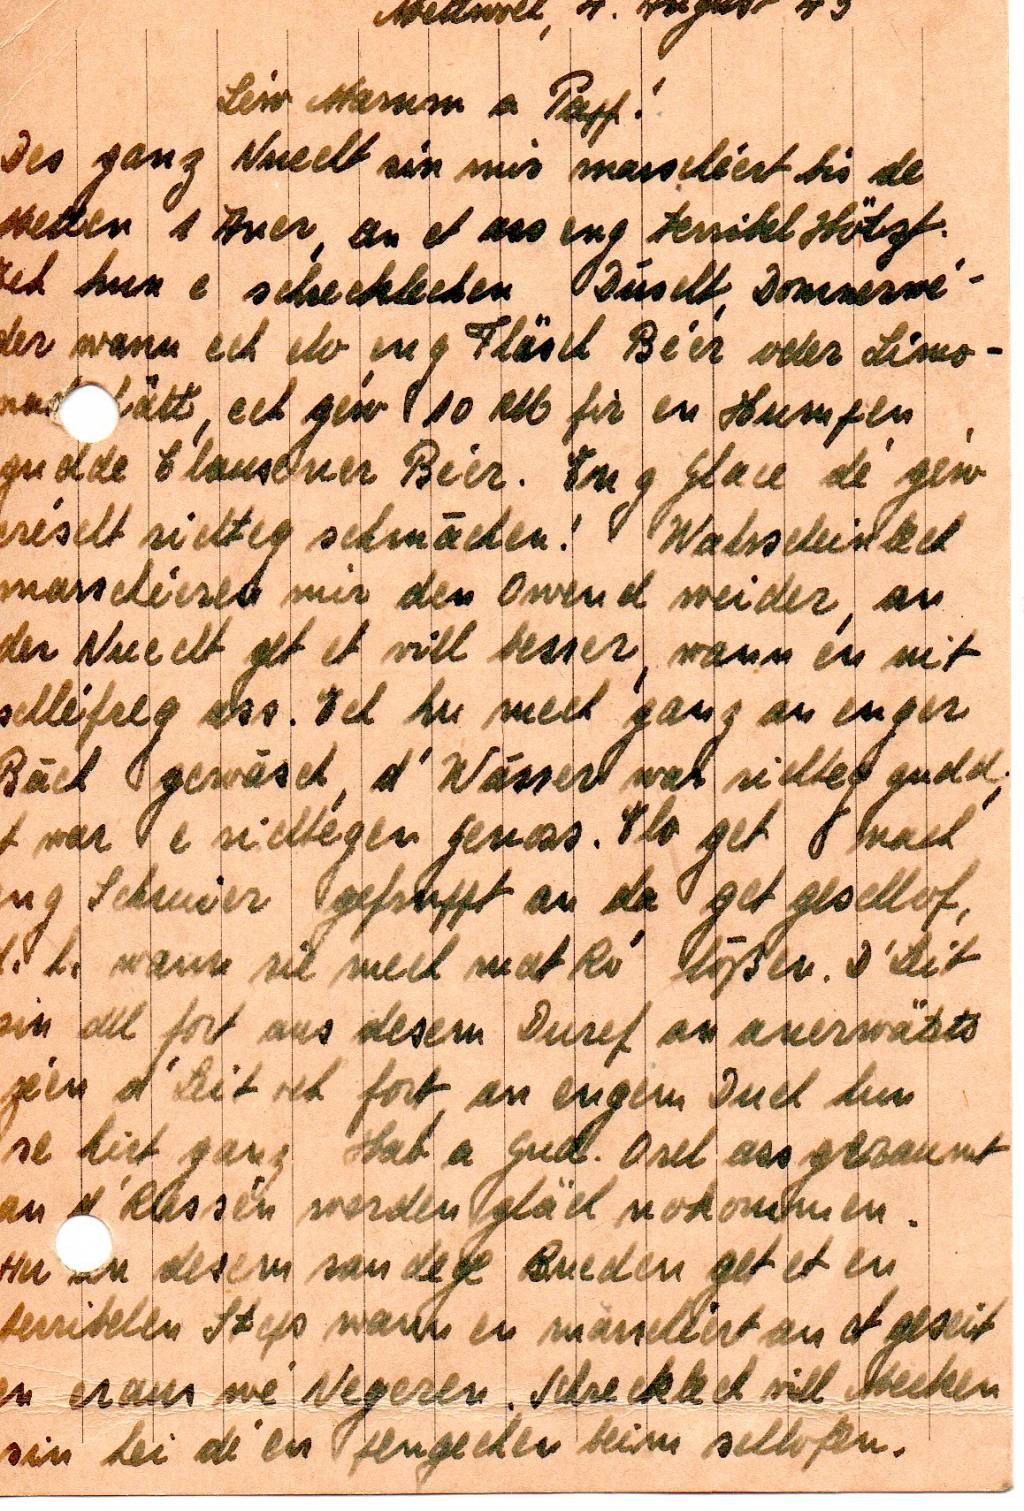 Mettwoch, 4. August 43
Léiw Mamm a Papp!
Des ganz Nuecht sin mir marschéiert bis de
Metten 1 Auer, an et ass eng terribel Hëtzt.
Ech hun e schrecklechen Duuscht, Donnerwé-
der wann ech elo eng Fläsch Béér oder Limo-
nad hätt, ech géiw 10 RM fir en Humpen
gudde Clausener Béer. Eng Glace dé géiw
eréischt richteg schmāchen! Wahrscheinlech
marschéieren mir den Owend weider, an
der Nuecht get et vill besser, wann én nit
schléifreg ass. Ech hu mech ganz an enger
Bāch gewäsch, d'Wāsser war richteg gudd,
t war e richtegen Genoss. Elo get nach
eng Schmier gefrupft an da get geschlof,
d. h. wann sie mech mat Ró loßen. D'Leit
sin all fort aus desem Duref an anerwäerts
zéen d'Leit och fort, an engem Duch hun
se hirt ganz Hab a Gud. Orel ass geraumt
an d'Russén werden gläch nokommen.
Hei an desem sandege Bueden get et en
terribelen Stëps wann en marschéiert an et geseit
en eraus wé Negeren. Schrecklech vill Mecken
sin hei dé en pengechen beim schlofen.